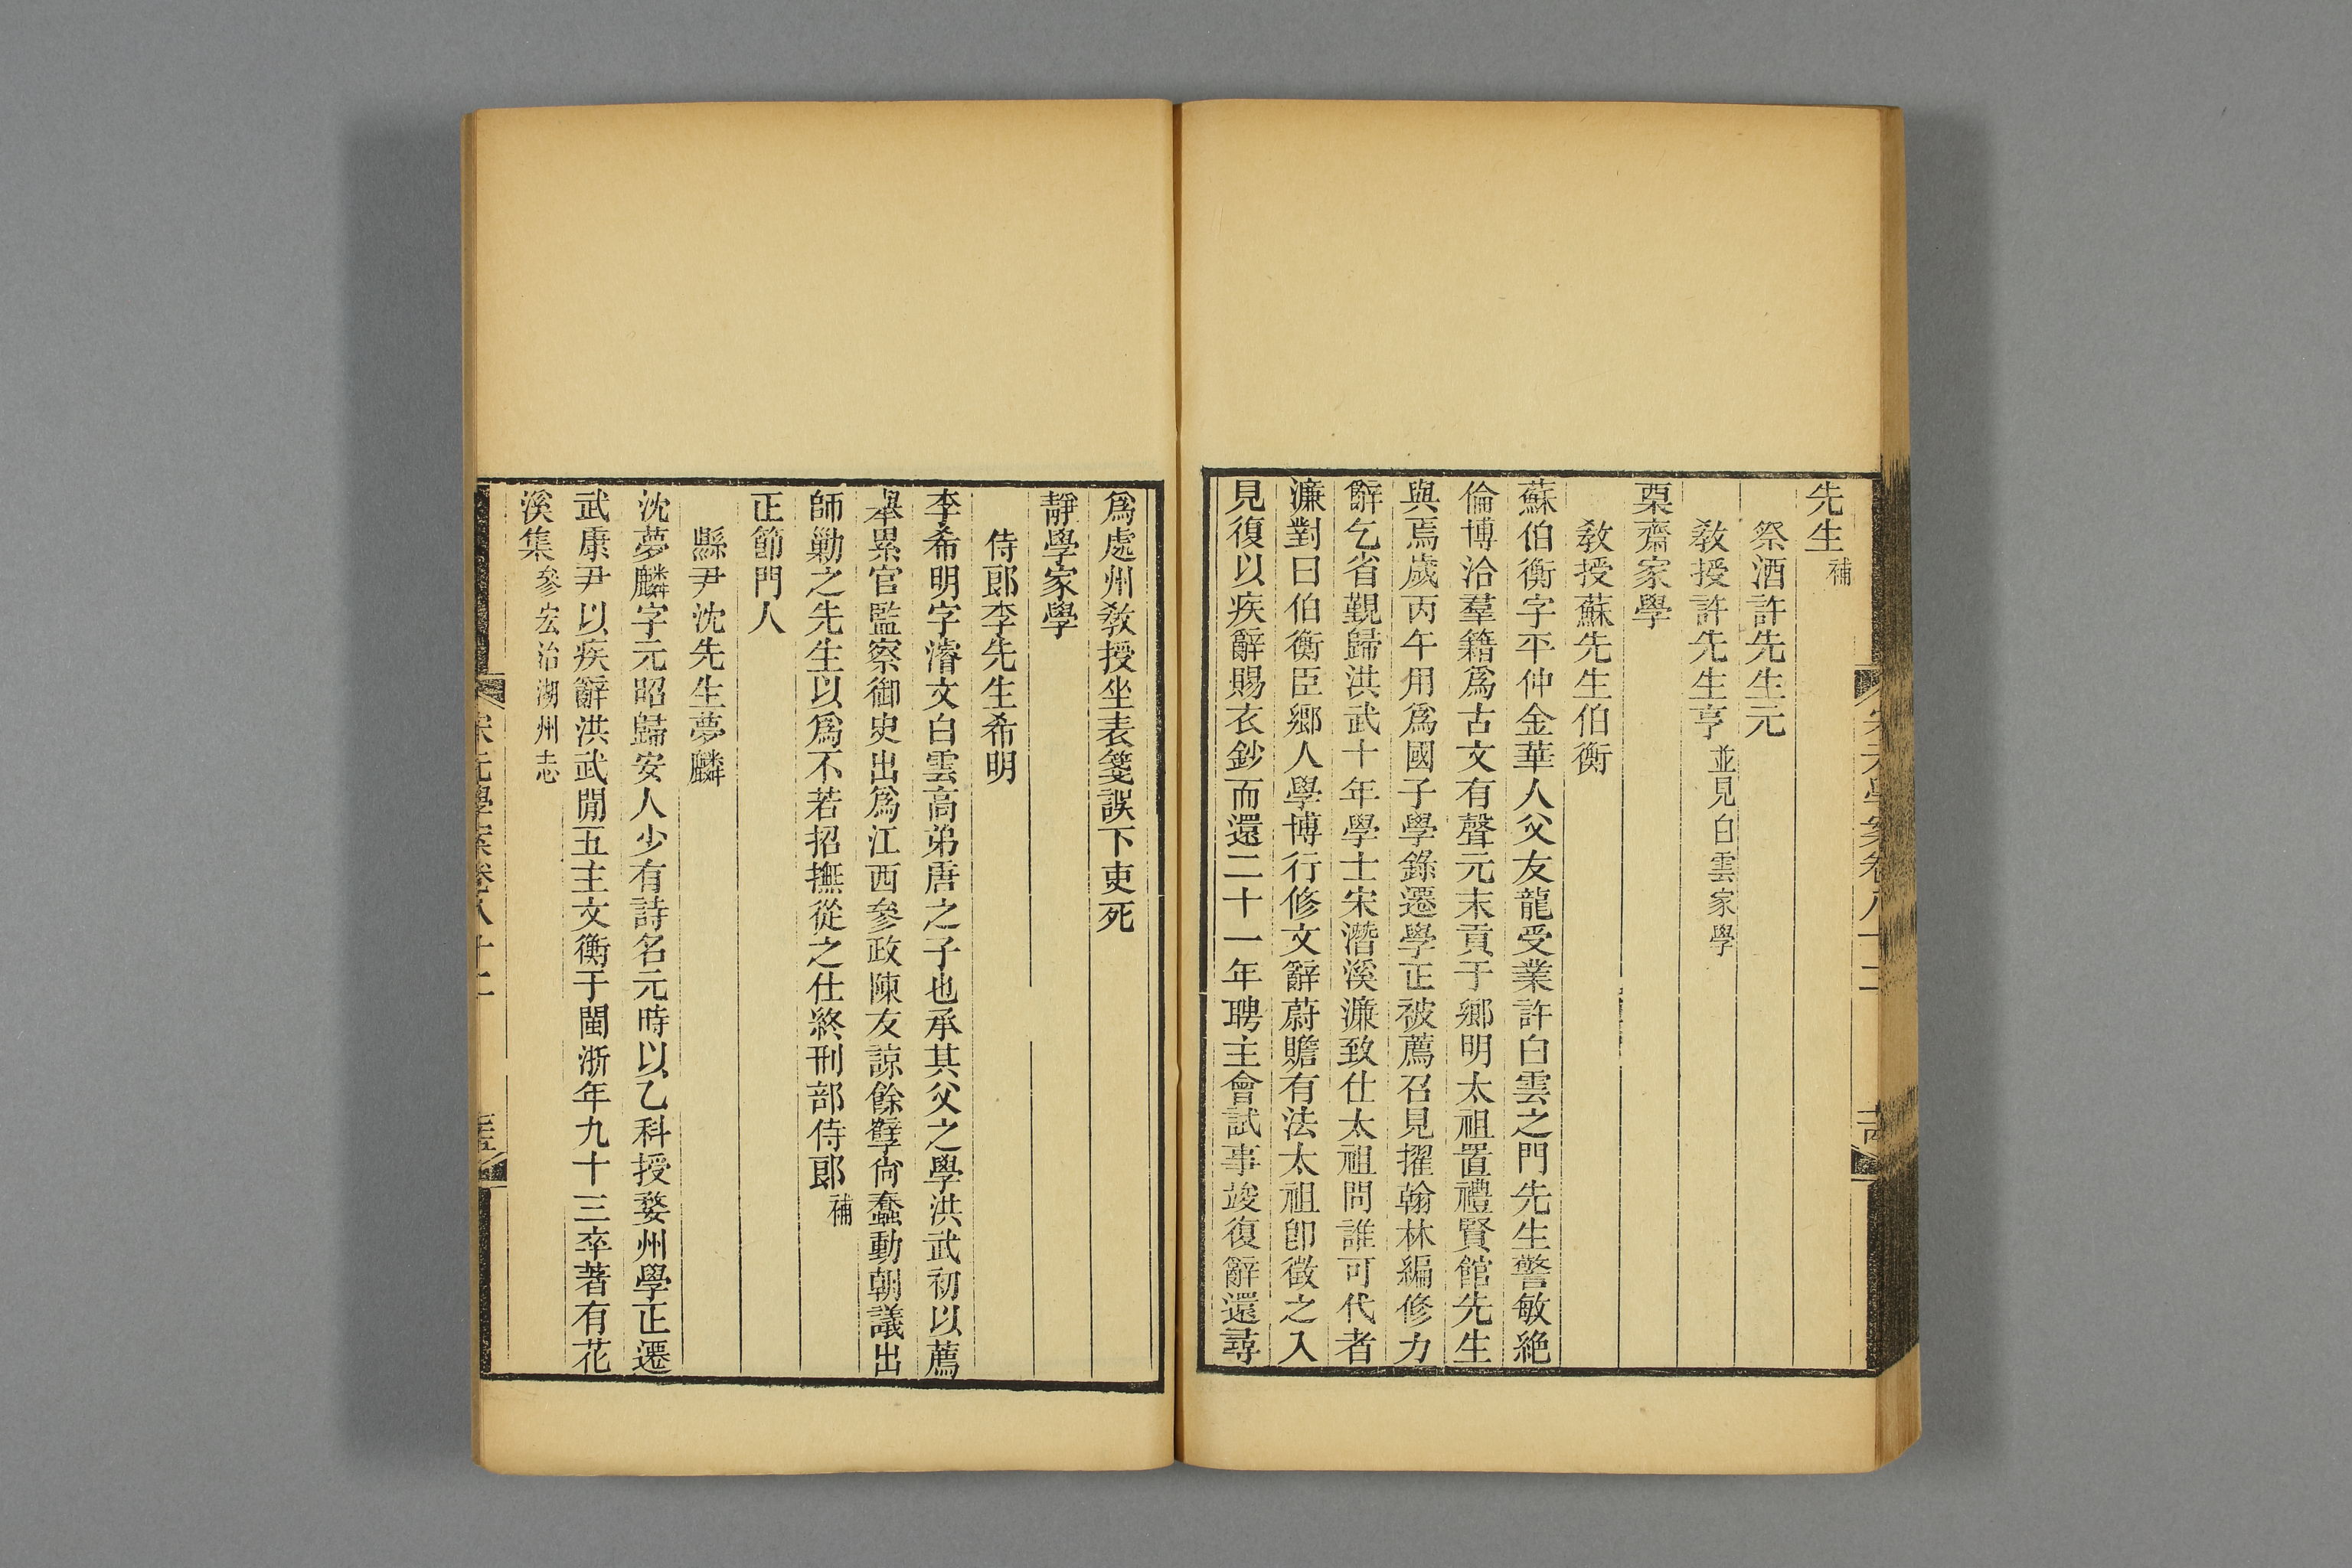 先生補
祭酒許先生元
敎授許先生亨並見白雲家學
栗齋家學
敎授蘇先生伯衡
蘇伯衡字平仲金華人父友龍受業許白雲之門先生警敏絶
倫博洽羣籍爲古文有聲元末貢于鄉明太祖置禮賢館先生
與焉歲丙午用爲國子學錄遷學正被薦召見擢翰林編修力
辭乞省覲歸洪武十年學士宋潛溪濂致仕太祖問誰可代者
濂對曰伯衡臣鄉人學博行修文辭蔚贍有法太祖卽徵之入
見復以疾辭賜衣鈔而還二十一年聘主會試事竣復辭還尋
爲處州敎授坐表箋誤下吏死
靜學家學
侍郞李先生希明
李希明字濬文白雲高弟唐之子也承其父之學洪武初以薦
舉累官監察御史出爲江西參政陳友諒餘孼尙蠢動朝議出
師勦之先生以爲不若招撫從之仕終刑部侍郞補
正節門人
縣尹沈先生夢麟
沈夢麟字元昭歸安人少有詩名元時以乙科授婺州學正遷
武康尹以疾辭洪武閒五主文衡于閩浙年九十三卒著有花
溪集參宏治湖州志
宋元學案卷八十二